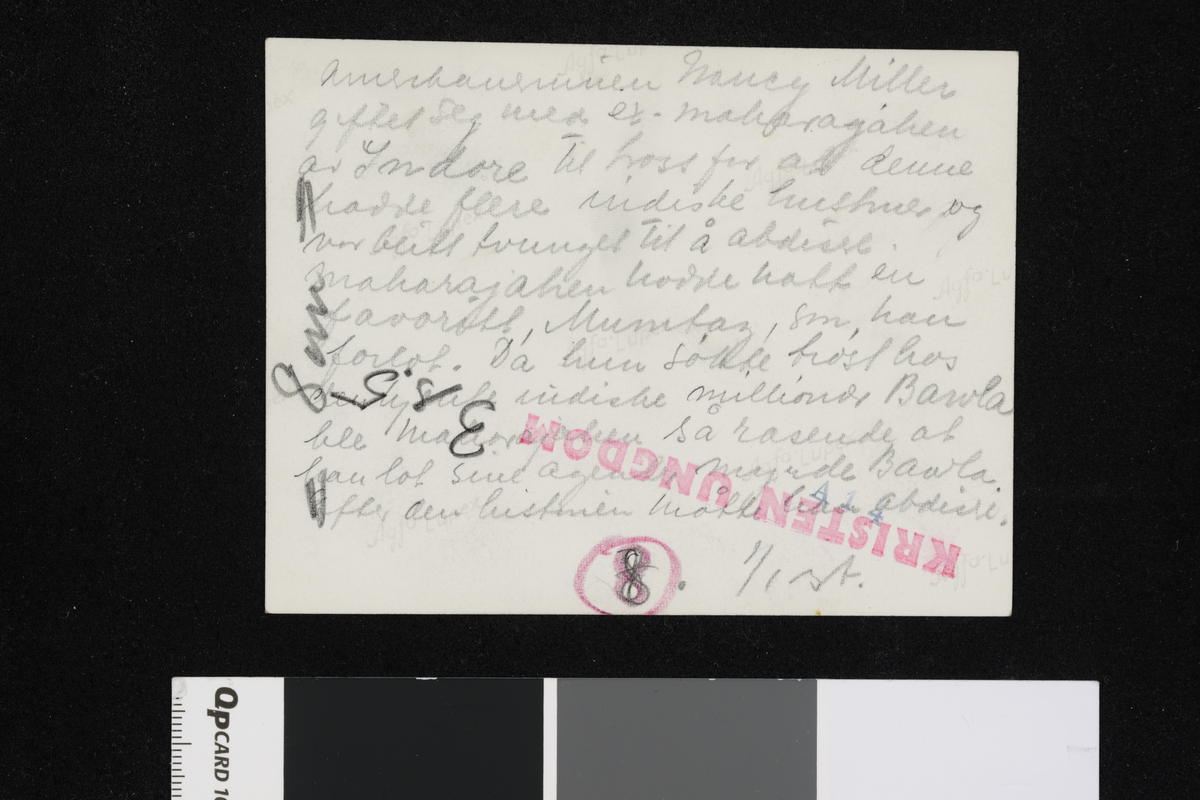 Amerikanerinnen Nancy Miller
giftet seg med ex-maharajahen
av Indore til tross for at denne
hadde flere indiske hustruer og
var blitt tvunget til å abdisere.
Maharajahen hadde hatt en
favoritt, Mumtaz, som han
forlot. Da hun søkte trøst hos
indiske millionær Bawla
ble Maharajahen så rasende at
han lot sine agenter myrde Bawla.
Efter den historien måtte han abdisere.
8 mm
KRISTEN UNGDOM
A 14
8.
1/1 rst.
QPCARD 10